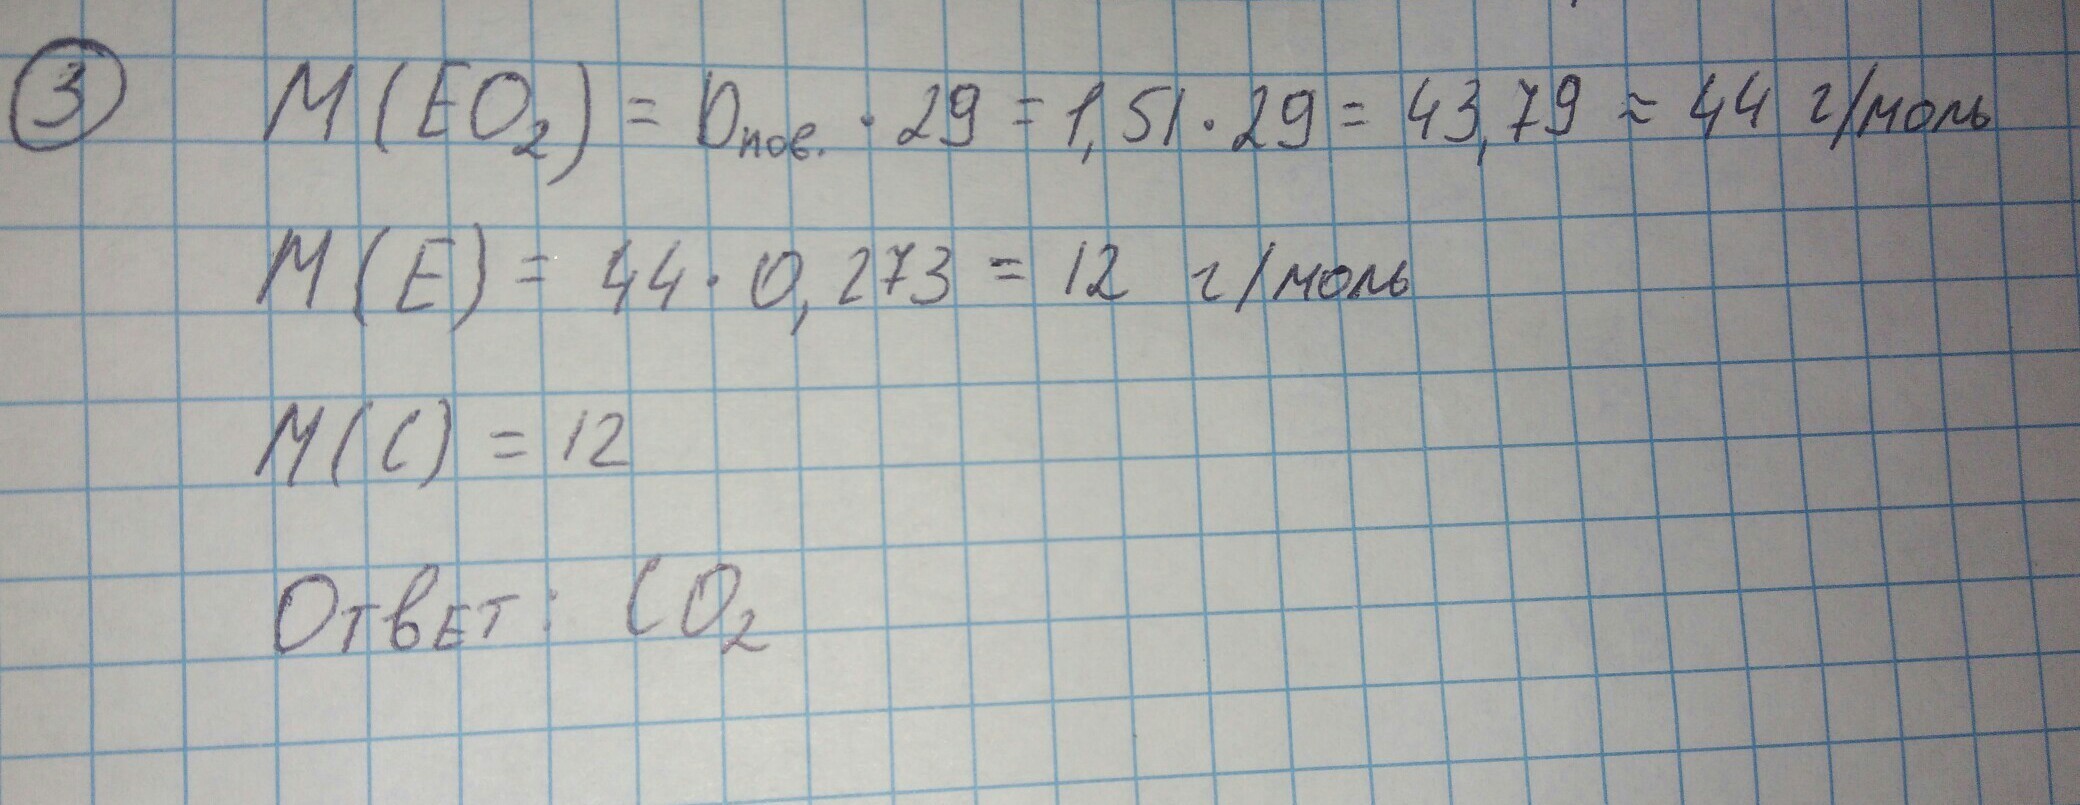 3 M(EO₂) = Dпов. · 29 = 1,51 · 29 = 43,79 ≈ 44 г/моль
M(E) = 44 · 0,273 = 12 г/моль
M(C) = 12
Ответ: CO₂